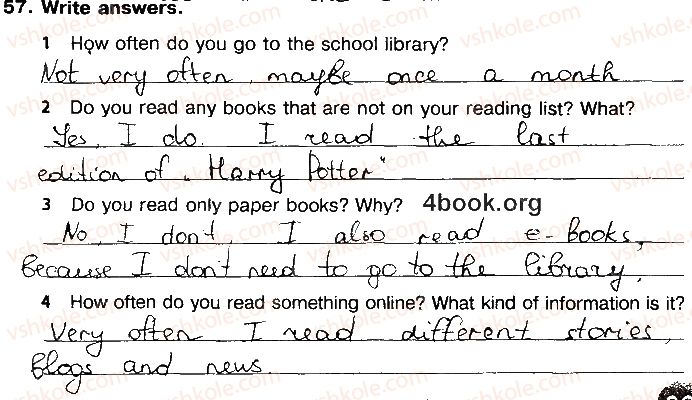 57. Write answers.
1 How often do you go to the school library?
Not very often, maybe once a month
2 Do you read any books that are not on your reading list? What?
Yes, I do. I read the last
edition of „Harry Potter"
3 Do you read only paper books? Why? 4book.org
No, I don't, I also read e-books,
Because I don't need to go to the library.
4 How often do you read something online? What kind of information is it?
Very often I read different stories,
Blogs and news.